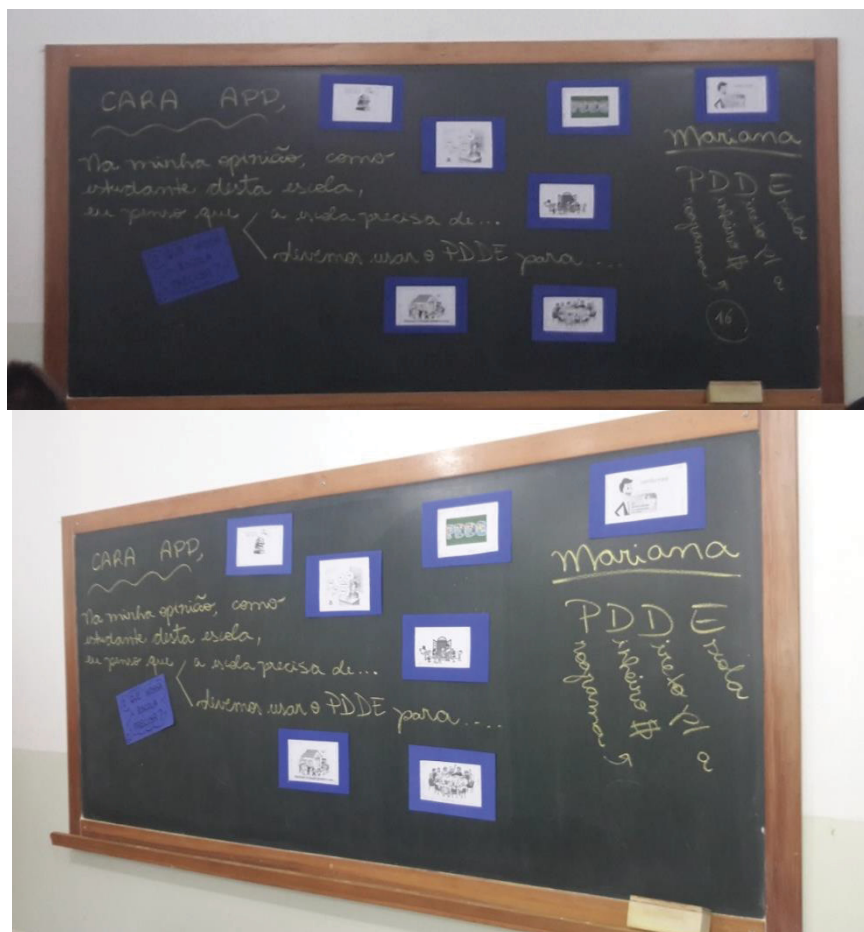 CARA APP,
Na minha opinião, como
estudante desta escola,
eu penso que
a escola precisa de...
devemos usar o PDDE para ...
O QUE NOSSA
ESCOLA
PRECISA?
PDDE
Mariana
PDDE
rograma
inheiro $
ireto p/ a
scola
16
CARA APP,
Na minha opinião, como
estudante desta escola,
eu penso que
a escola precisa de...
devemos usar o PDDE para....
O QUE NOSSA
ESCOLA
PRECISA?
PDDE
Mariana
PDDE
rograma
inheiro $
ireto p/ a
scola